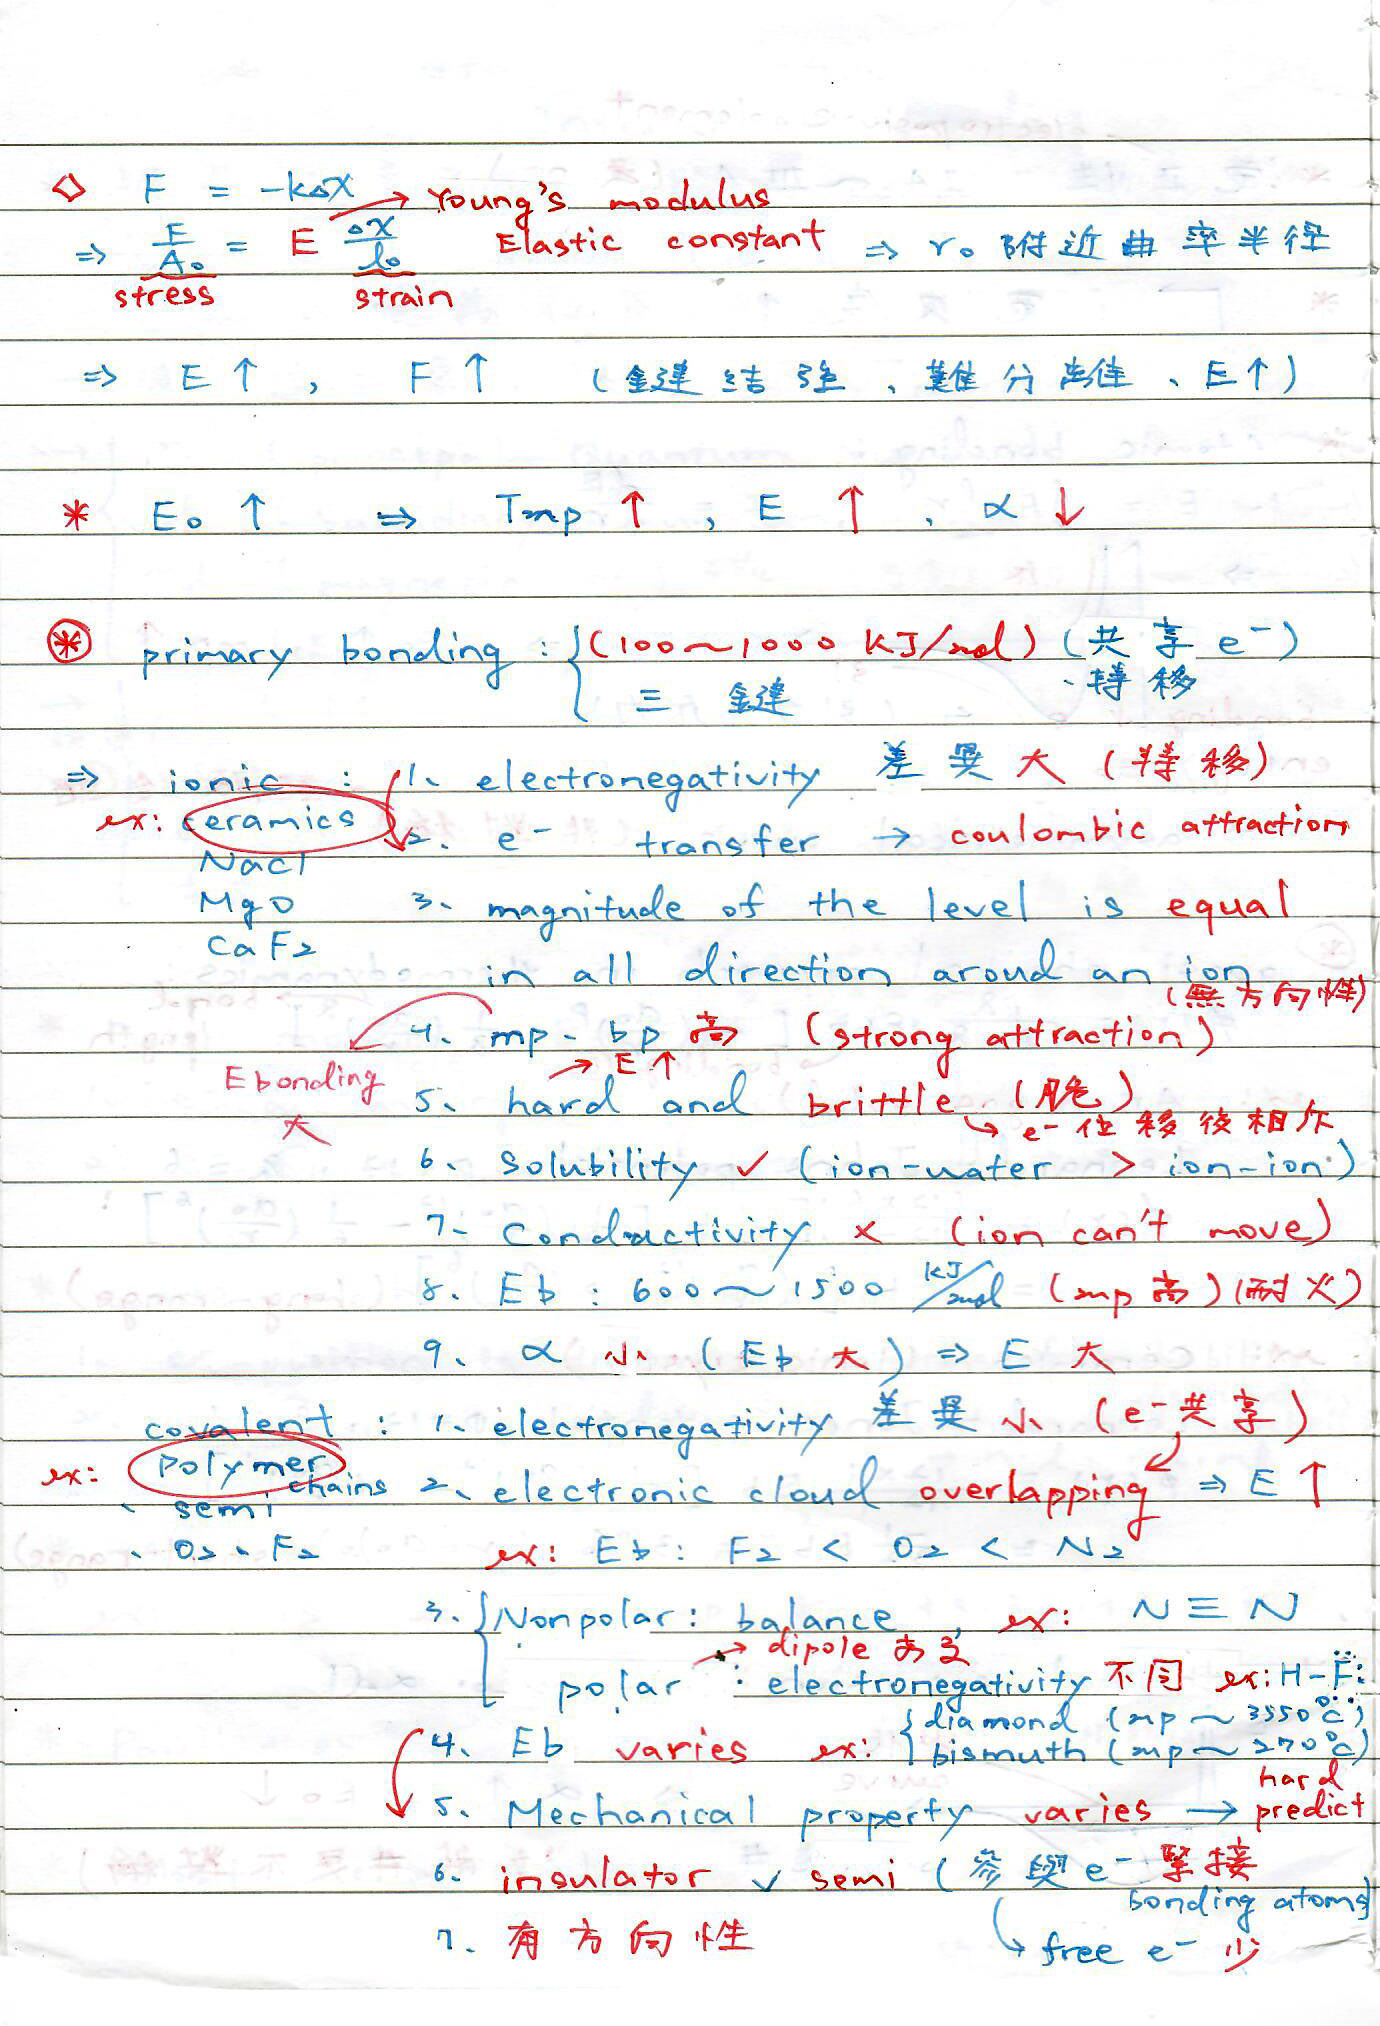 ◇ F = -kΔx → Young's modulus
⇒ F/A₀ = E Δx/l₀ Elastic constant ⇒ r₀ 附近曲率半径
stress strain
⇒ E↑, F↑ (鍵結強、難分離、E↑)
* E₀↑ ⇒ Tmp↑, E↑, α↓
⊛ primary bonding : { (100~1000 KJ/mol) (共享 e⁻)
三鍵 、轉移
⇒ ionic : 1、electronegativity 差異大 (轉移)
ex: ceramics 2、e⁻ transfer → coulombic attraction
NaCl
MgO 3、magnitude of the level is equal
CaF₂
in all direction aroud an ion
(無方向性)
4、mp、bp 高 (strong attraction)
Ebonding 大
→ E↑
5、hard and brittle (脆)
↳ e⁻位移後相斥
6、solubility ✓ (ion-water > ion-ion)
7、Conductivity × (ion can't move)
8、Eb : 600~1500 KJ/mol (mp高)(耐火)
9、α 小 (Eb大) ⇒ E 大
covalent : 1、electronegativity 差異小 (e⁻共享)
ex: polymer chains 2、electronic cloud overlapping ⇒ E↑
、semi
、O₂、F₂ ex: Eb: F₂ < O₂ < N₂
3、{ Nonpolar: balance, ex: N≡N
→ dipole ある
polar : electronegativity 不同 ex: H-F
4、Eb varies ex: { diamond (mp~3550°C)
bismuth (mp~270°C)
5、Mechanical property varies → hard predict
6、insulator ✓ semi (參與e⁻緊接
bonding atoms)
↳ free e⁻ 少
7、有方向性